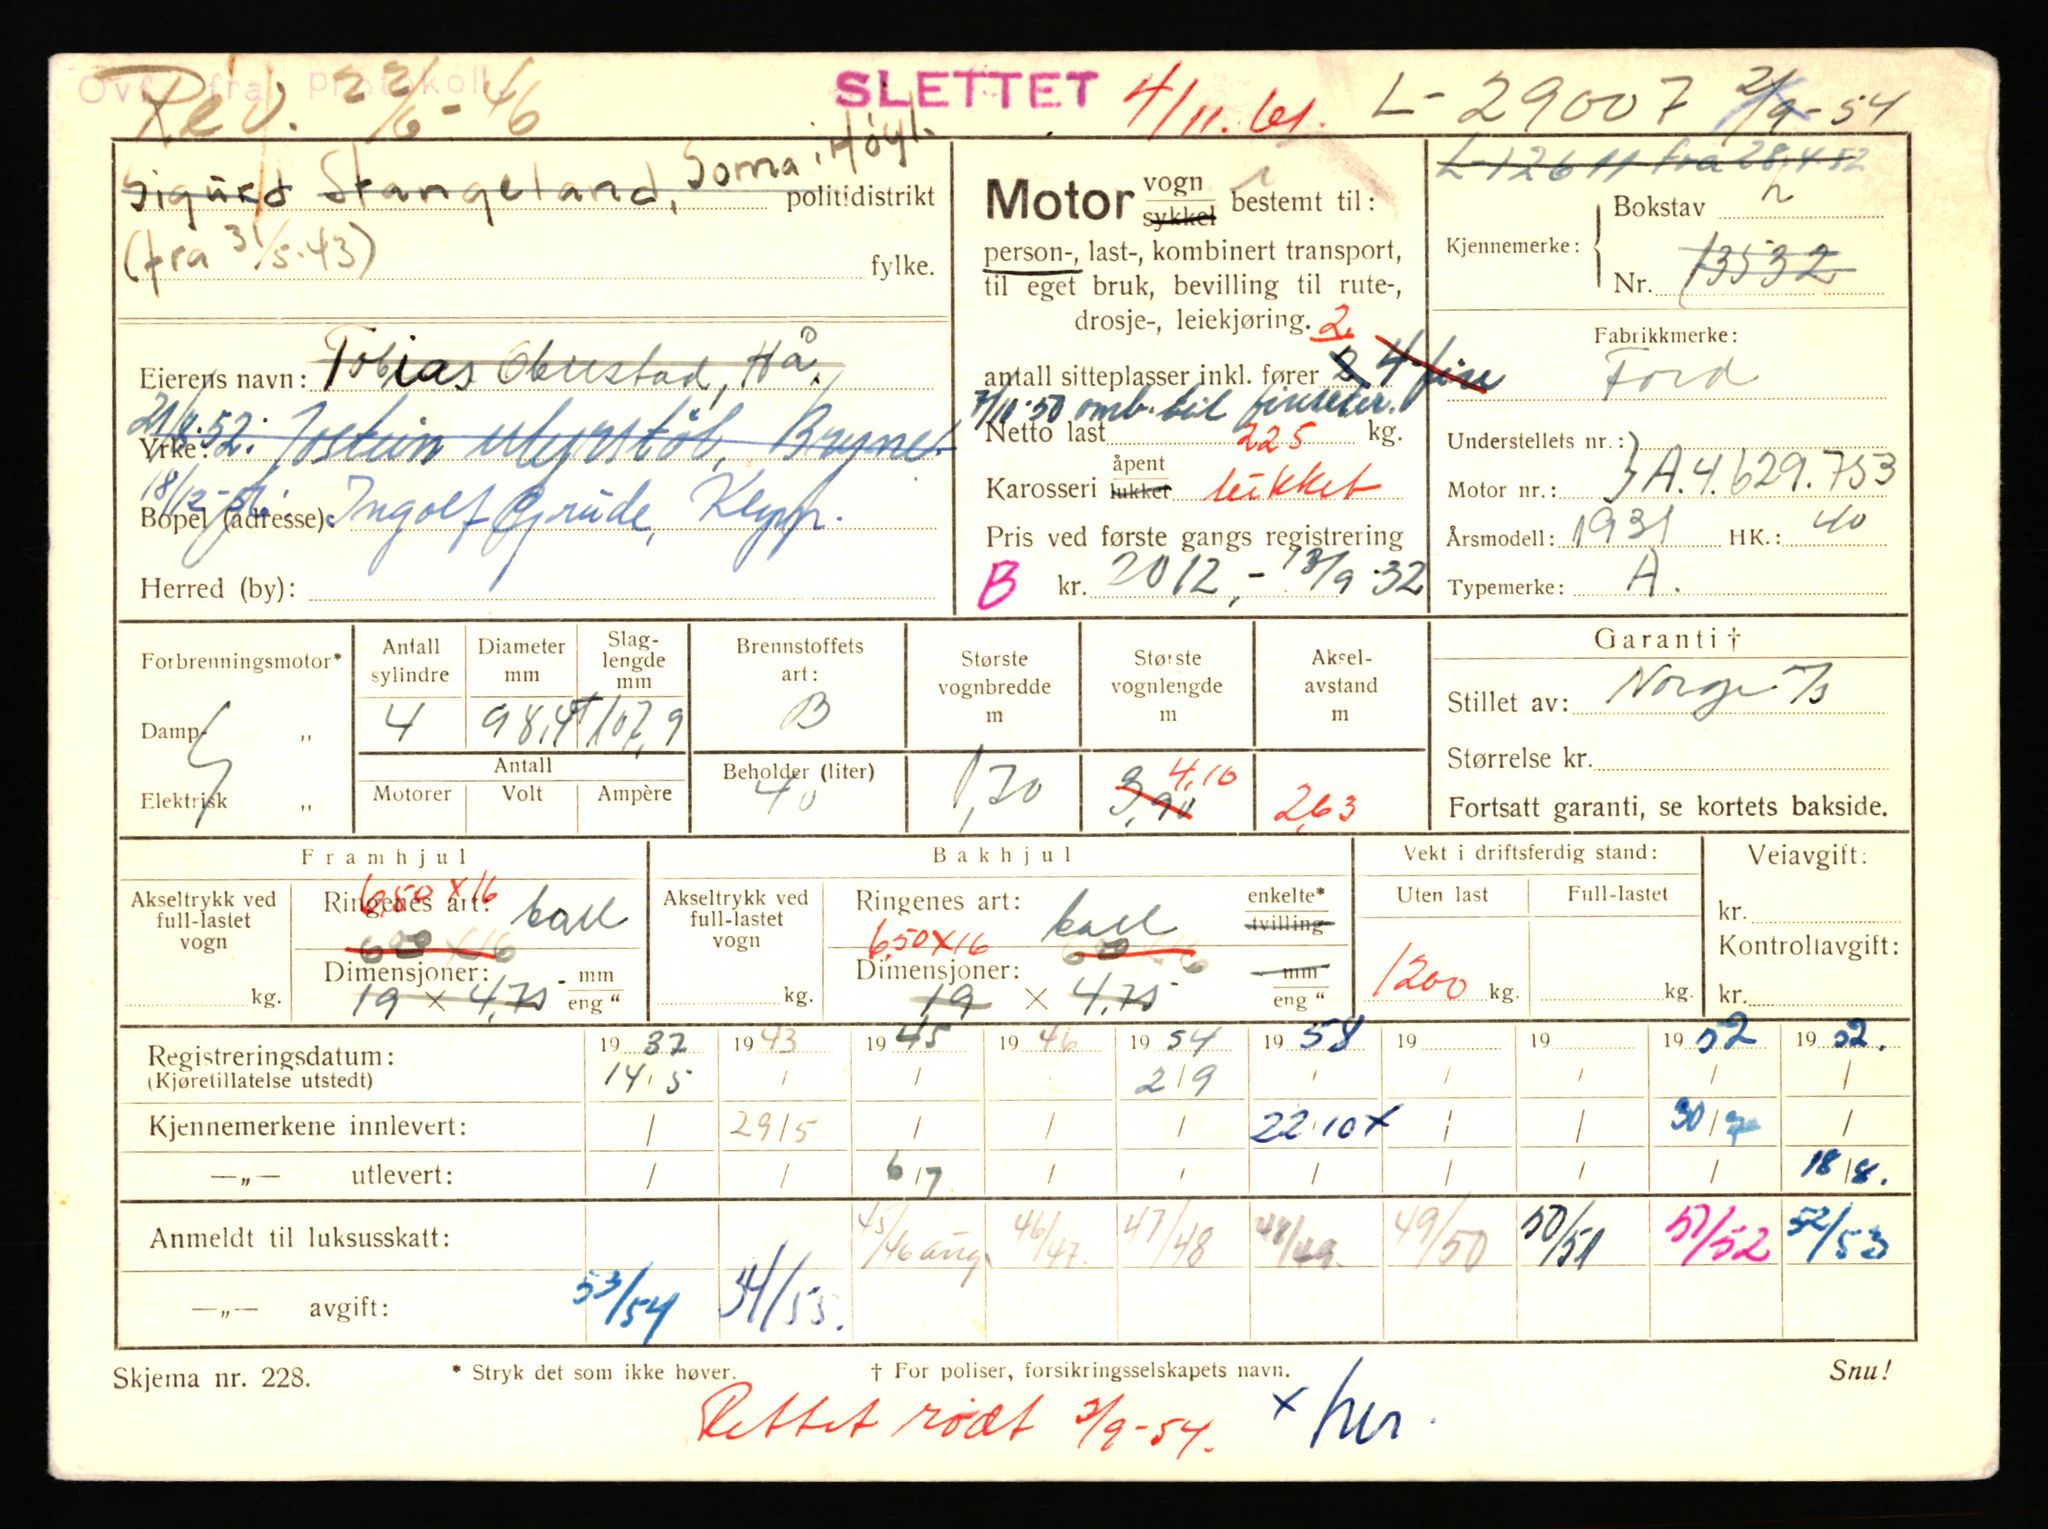 Ovf. fra protokoll.
Rev. 22/6-46
SLETTET 4/11.61. L-29007 2/9-54
Sigurd Stangeland, Soma, Høyl. politidistrikt
(fra 31/5.43)
fylke.
Eierens navn: Tobias Obrestad, Hå.
21/8.52: Jostein Myrstøl, Bryne.
Yrke:
18/12-56: Ingolf Grude, Klepp.
Bopel (adresse):
Herred (by):
Motor vogn sykkel bestemt til:
person-, last-, kombinert transport,
til eget bruk, bevilling til rute-,
drosje-, leiekjøring. 2.
antall sitteplasser inkl. fører 2 4 fire
7/11.50 omb. til fireseter.
Netto last 225 kg.
Karosseri åpent lukket lukket
Pris ved første gangs registrering
B kr. 2012,- 13/9.32
L-12611 fra 28.4.52
Kjennemerke: Bokstav L
Nr. 13532
Fabrikkmerke:
Ford
Understellets nr.:
Motor nr.: A.4.629.753
Årsmodell: 1931 HK.: 40
Typemerke: A.
Forbrenningsmotor*
Damp- „
Elektrisk „
Antall sylindre 4
Diameter mm 98,4
Slag-lengde mm 107,9
Antall
Motorer Volt Ampère
Brennstoffets art: B
Beholder (liter) 40
Største vognbredde m 1,70
Største vognlengde m 3,90 4,10
Aksel-avstand m 2,63
Garanti †
Stillet av: Norge A/S
Størrelse kr.
Fortsatt garanti, se kortets bakside.
Framhjul
Akseltrykk ved full-lastet vogn kg.
Ringenes art: ball
650 x 16
600 x 16
Dimensjoner: mm
19 x 4,75 eng “
Bakhjul
Akseltrykk ved full-lastet vogn kg.
Ringenes art: ball enkelte* tvilling
650 x 16 600 16
Dimensjoner: mm
19 x 4.75 eng “
Vekt i driftsferdig stand:
Uten last Full-lastet
1200 kg. kg.
Veiavgift:
kr.
Kontrollavgift:
kr.
Registreringsdatum: 1937 1943 1945 1946 1954 1958 19 19 1952 1952.
(Kjøretillatelse utstedt) 14/5 / / 2/9 / / / / /
Kjennemerkene innlevert: / 29/5 / / / 22/10 x / / 30/7 /
—„— utlevert: / / 6/7 / / / / / / 18/8.
Anmeldt til luksusskatt: 45/46 aug. 46/47. 47/48 48/49. 49/50 50/51 51/52 52/53
—„— avgift: 53/54 54/55.
Skjema nr. 228. * Stryk det som ikke høver. † For poliser, forsikringsselskapets navn. Snu!
Rettet rødt 2/9-54. x her.